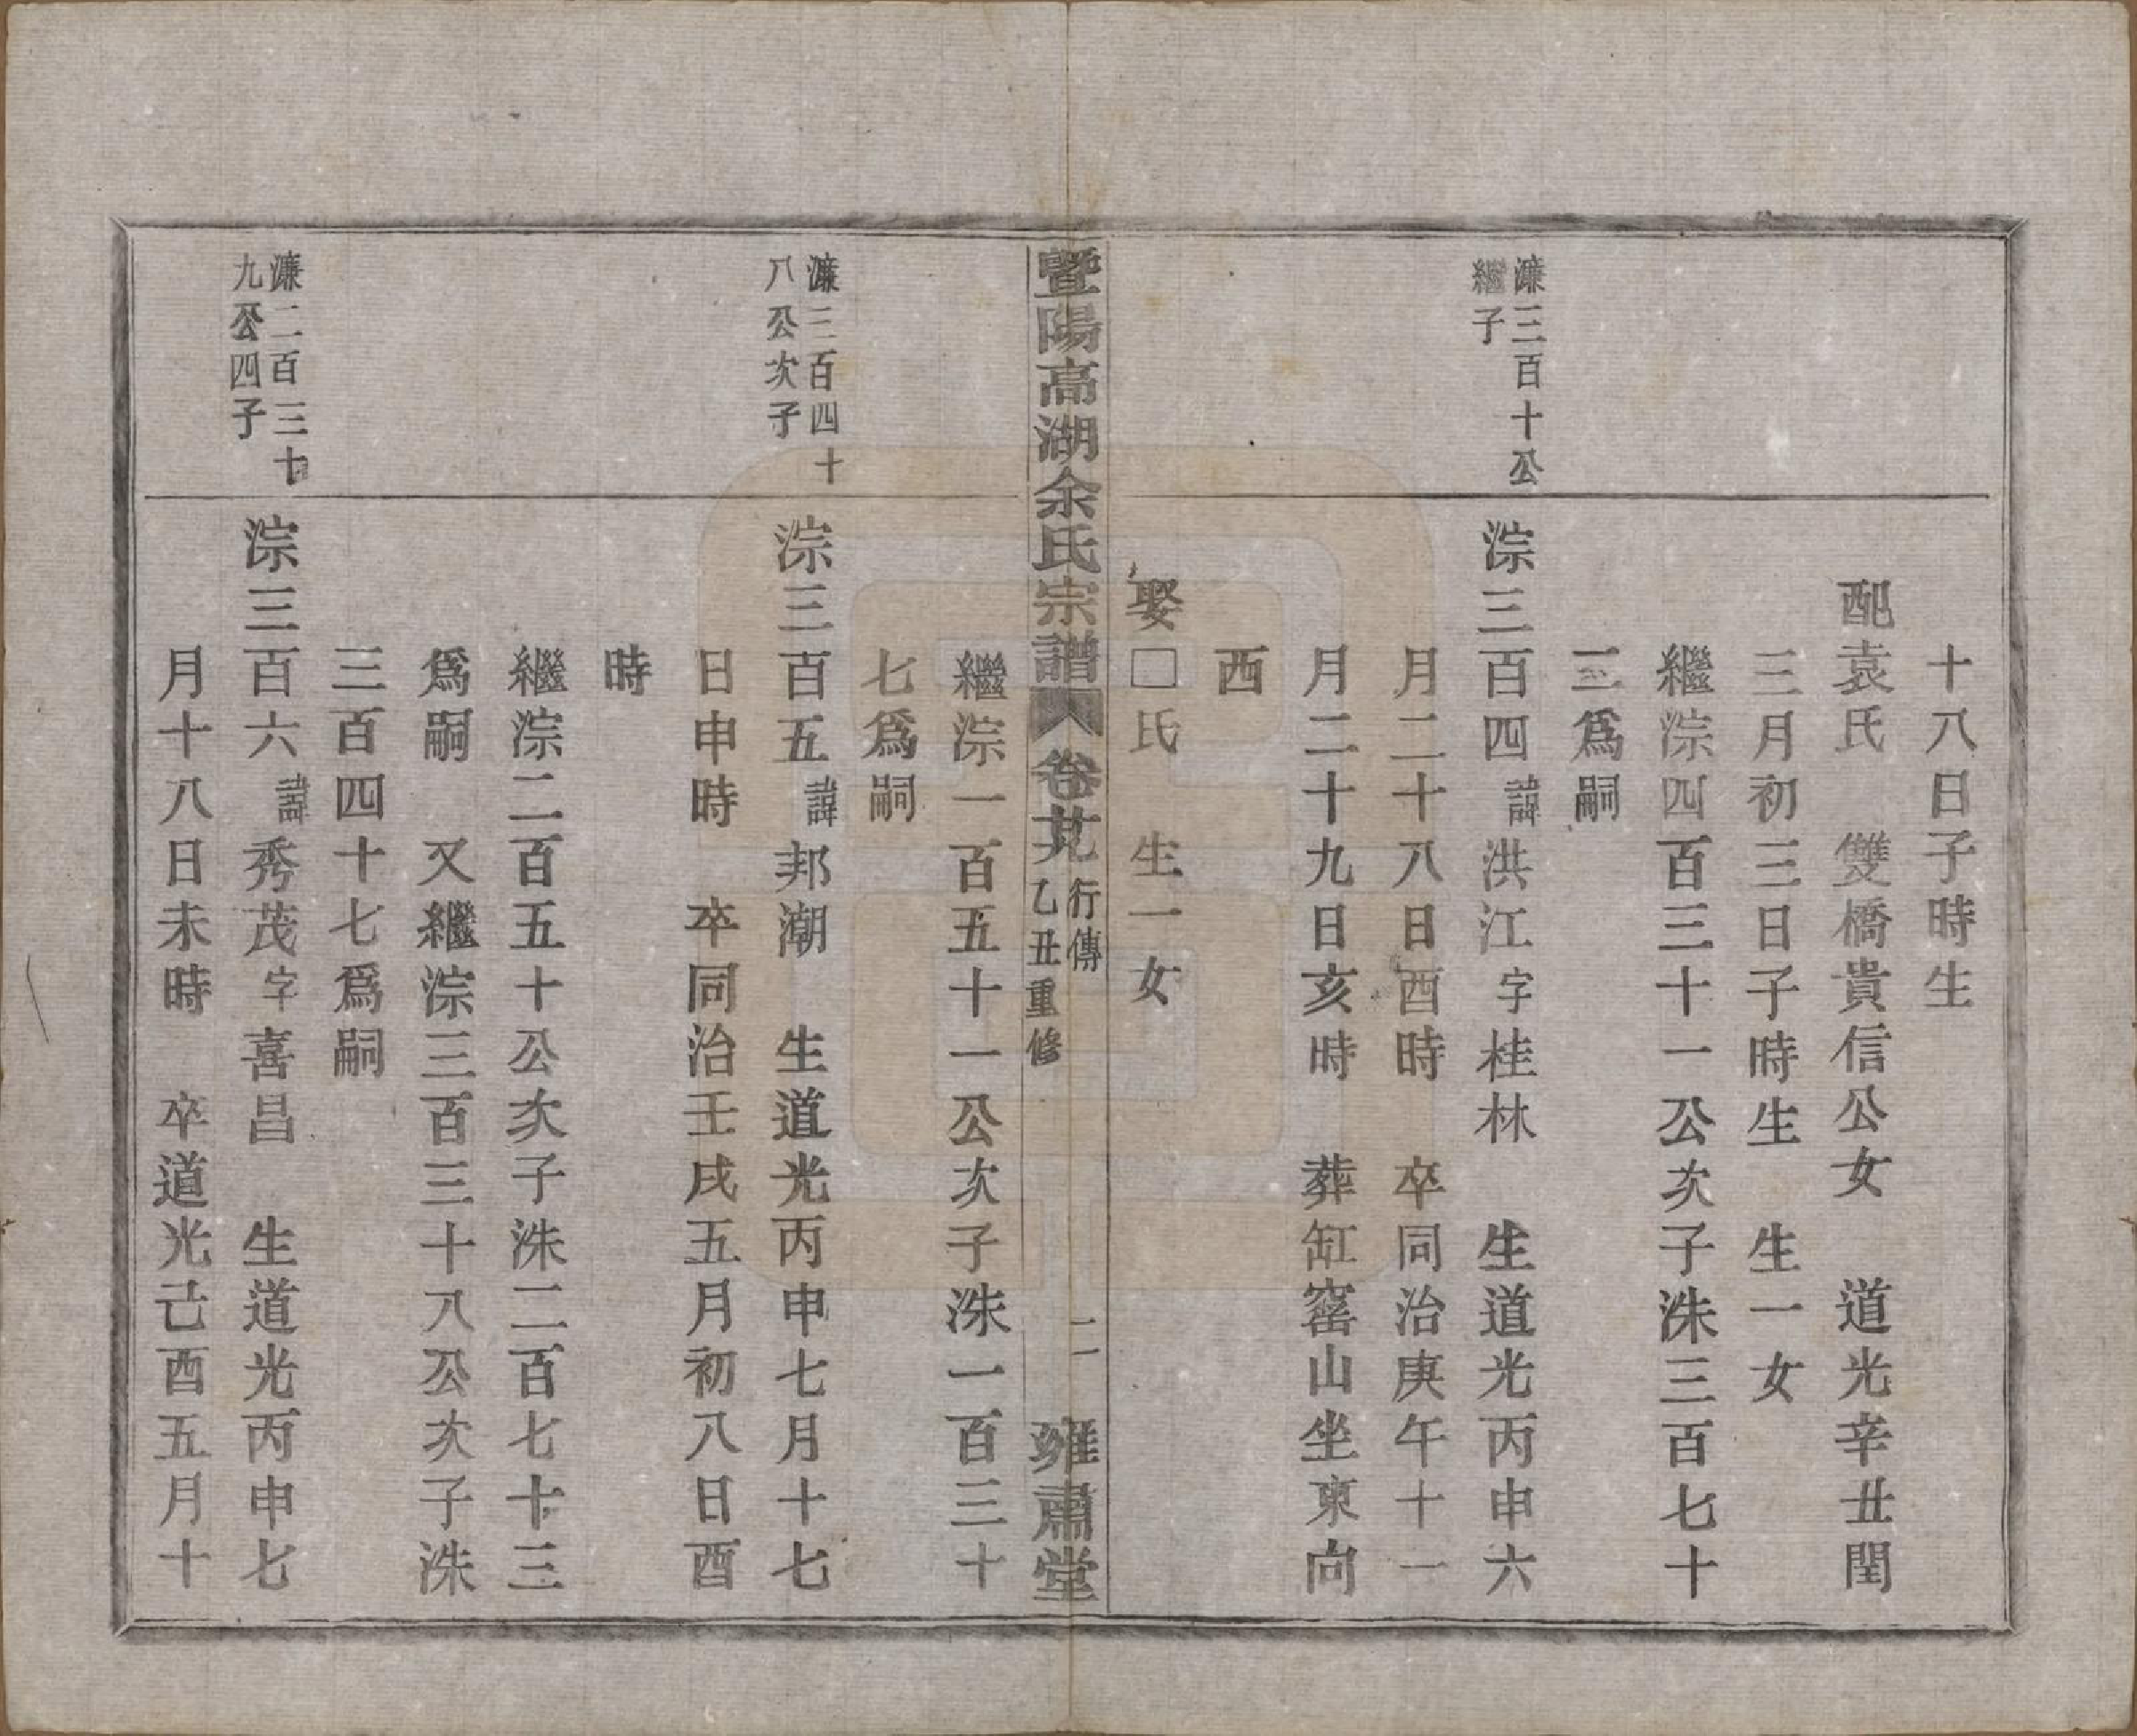 十八日子時生
配袁氏　雙橋貴信公女　道光辛丑閏
三月初三日子時生　生一女
繼淙四百三十一公次子洙三百七十
三爲嗣
濂三百十公
繼子
淙三百四諱洪江字桂林　生道光丙申六
月二十八日酉時　卒同治庚午十一
月二十九日亥時　葬缸窰山坐東向
西
娶□氏　生一女
暨陽高湖余氏宗譜　卷廿九　行傳　乙丑重修　二　雍肅堂
繼淙一百五十一公次子洙一百三十
七爲嗣
濂三百四十
八公次子
淙三百五諱邦潮　生道光丙申七月十七
日申時　卒同治壬戌五月初八日酉
時
繼淙二百五十公次子洙二百七十三
爲嗣　又繼淙三百三十八公次子洙
三百四十七爲嗣
濂二百三十
九公四子
淙三百六諱秀茂字喜昌　生道光丙申七
月十八日未時　卒道光己酉五月十